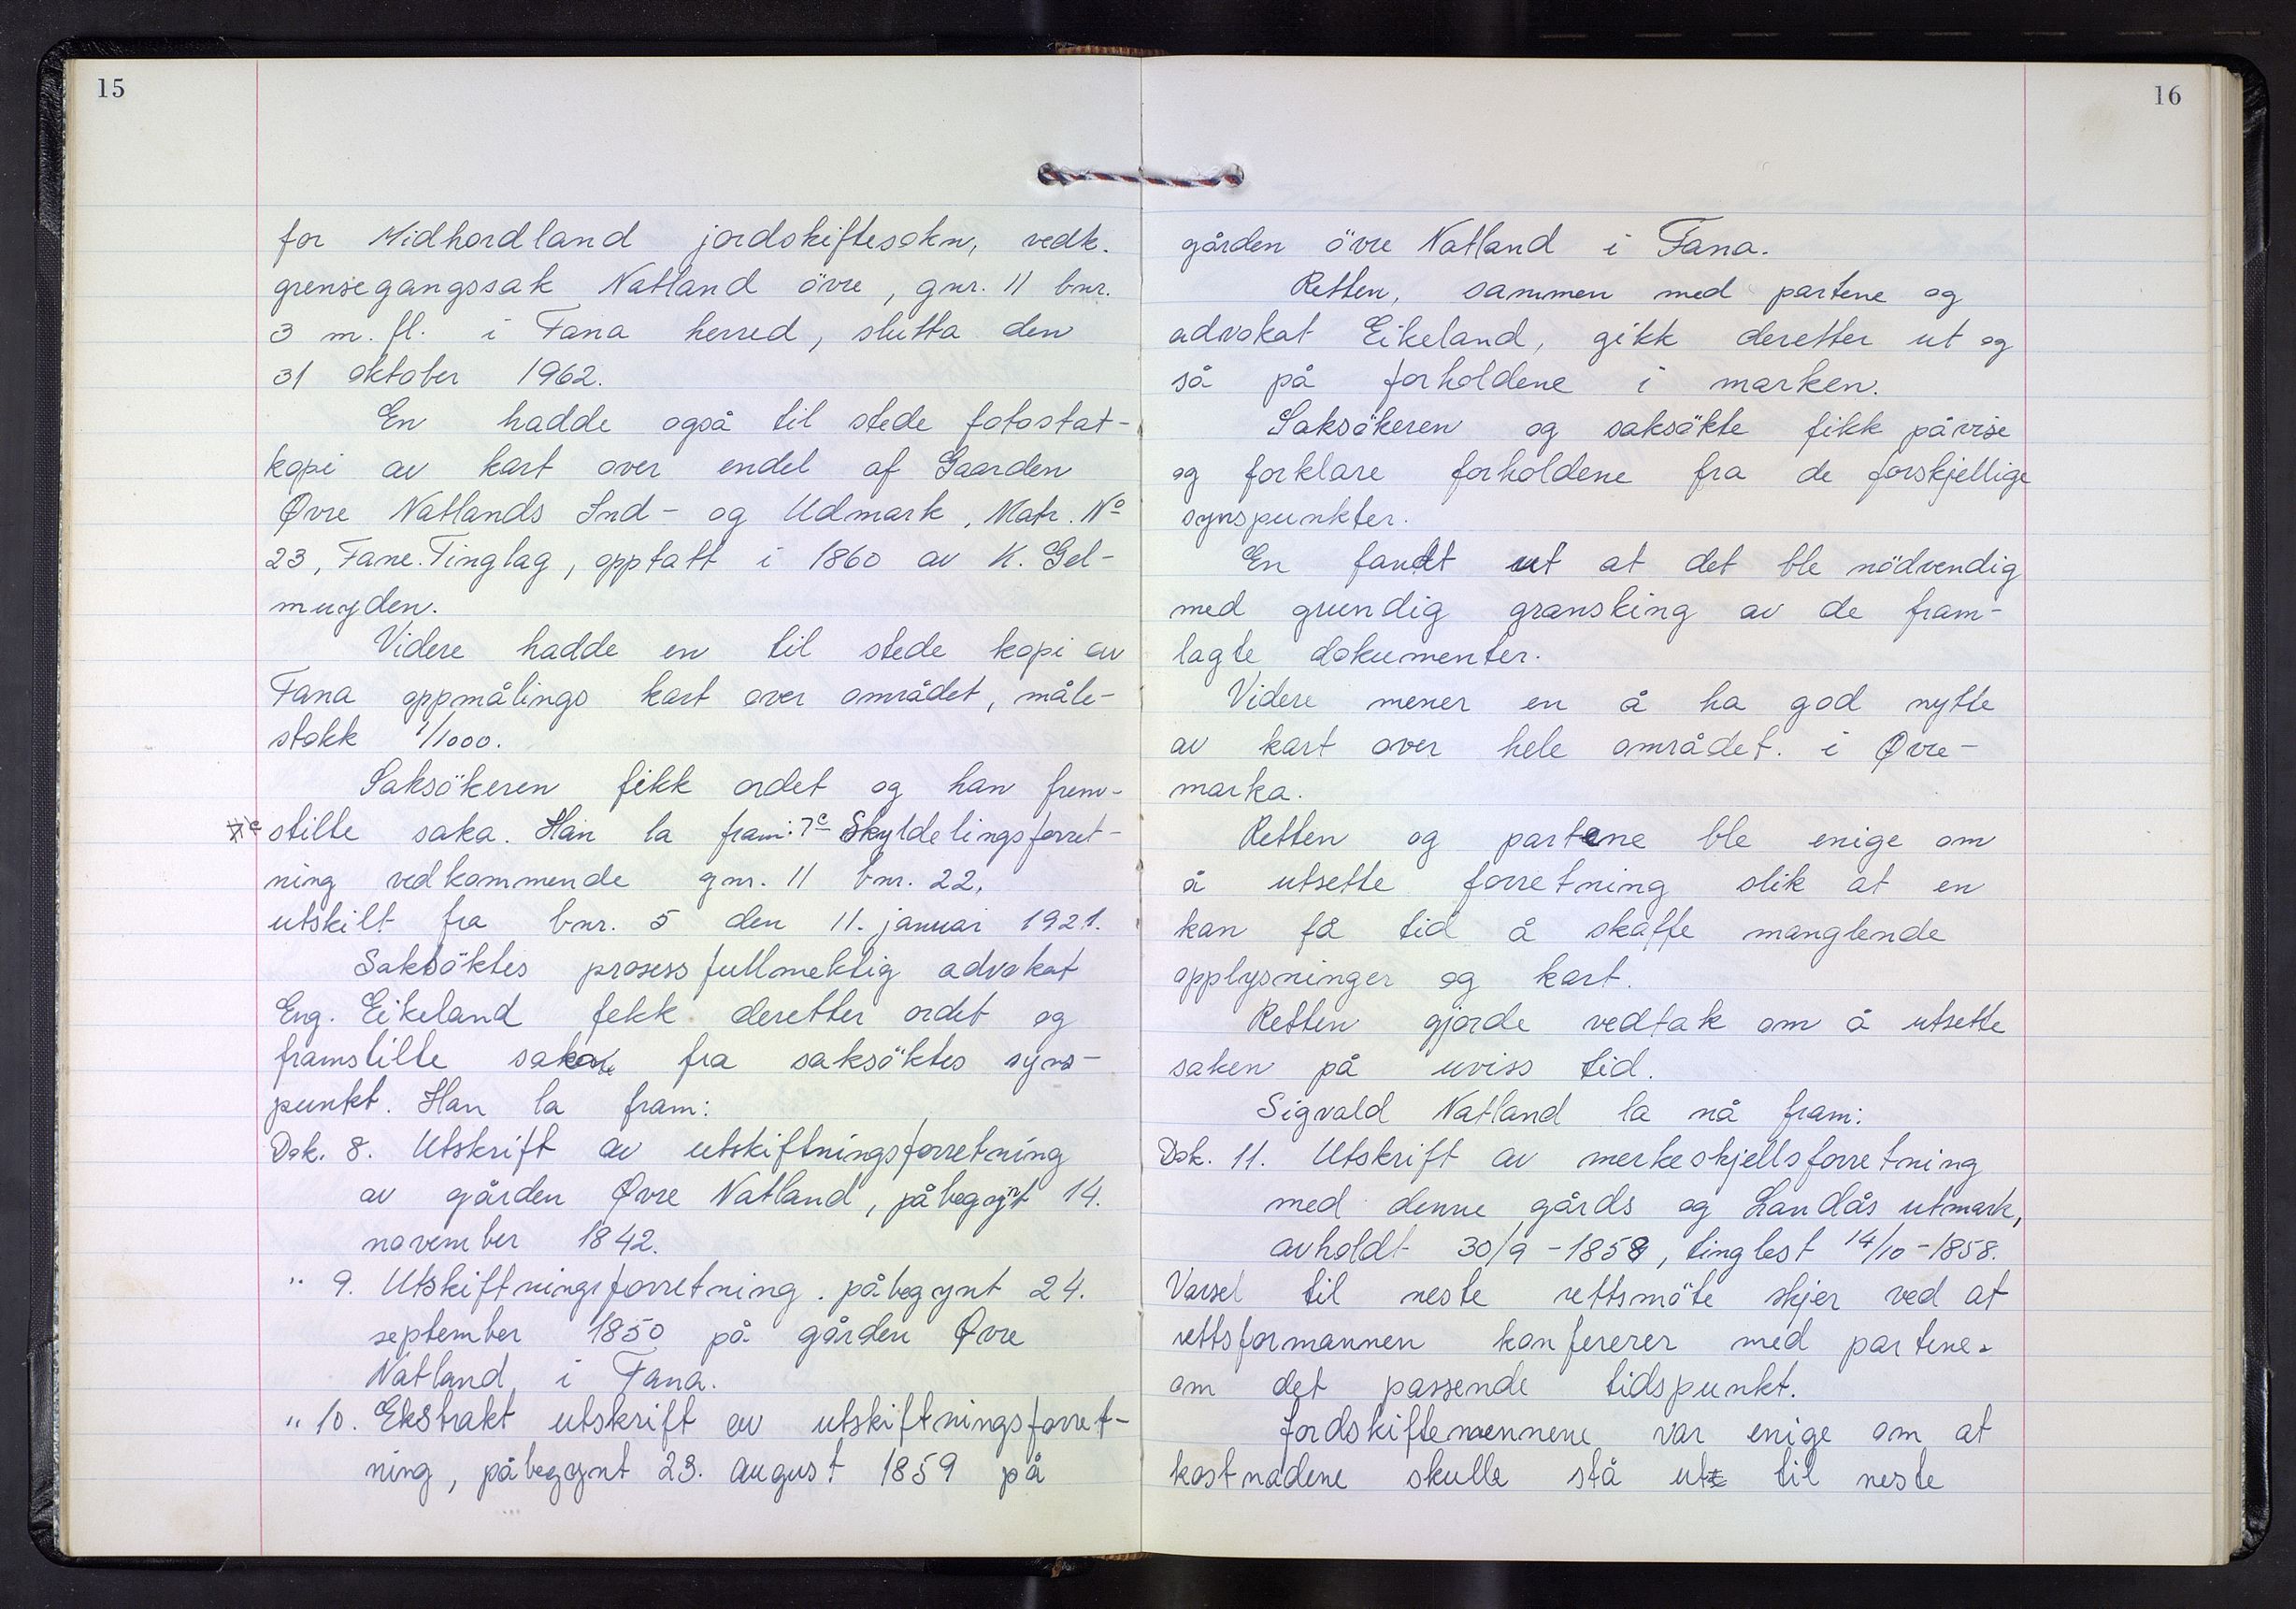 15
for Midhordland jordskiftesokn, vedk.
grensegangssak Natland övre, gnr. 11 bnr.
3 m. fl. i Fana herred, slutta den
31 oktober 1962.
En hadde også til stede fotostat-
kopi av kart over endel af Gaarden
Øvre Natlands Ind- og Udmark, Matr. Nº
23, Fane. Tinglag, opptatt i 1860 av K. Gel-
muyden.
Videre hadde en til stede kopi av
Fana oppmålings kart over området, måle-
stokk 1/1000.
Saksökeren fikk ordet og han frem-
7c stilte saka. Han la fram: 7c Skyldelingsforret-
ning vedkommende gnr. 11 bnr. 22,
utskilt fra bnr. 5 den 11. januar 1921.
Saksöktes prosessfullmektig advokat
Eng. Eikeland fekk deretter ordet og
framstilte saka fra saksöktes syns-
punkt. Han la fram:
Dok. 8. Utskrift av utskiftningsforretning
av gården Øvre Natland, påbegynt 14.
november 1842.
" 9. Utskiftningsforretning. påbegynt 24.
september 1850 på gården Øvre
Natland i Fana.
" 10. Ekstrakt utskrift av utskiftningsforret-
ning, påbegynt 23. august 1859 på
16
gården övre Natland i Fana.
Retten, sammen med partene og
advokat Eikeland, gikk deretter ut og
så på forholdene i marken.
Saksökeren og saksökte fikk påvise
og forklare forholdene fra de forskjellige
synspunkter.
En fandt ut at det ble nödvendig
med grundig gransking av de fram-
lagte dokumenter.
Videre mener en å ha god nytte
av kart over hele området. i Øvre-
marka.
Retten og partene ble enige om
å utsette forretning slik at en
kan få tid å skaffe manglende
opplysninger og kart.
Retten gjorde vedtak om å utsette
saken på uviss tid.
Sigvald Natland la nå fram:
Dok. 11. Utskrift av merkeskjellsforretning
med denne gårds og Landås utmark,
avholdt 30/9 - 1858, tinglest 14/10 - 1858.
Varsel til neste rettsmöte skjer ved at
rettsformannen konfererer med partene.
om det passende tidspunkt.
Jordskiftemennene var enige om at
kostnadene skulle stå ut til neste